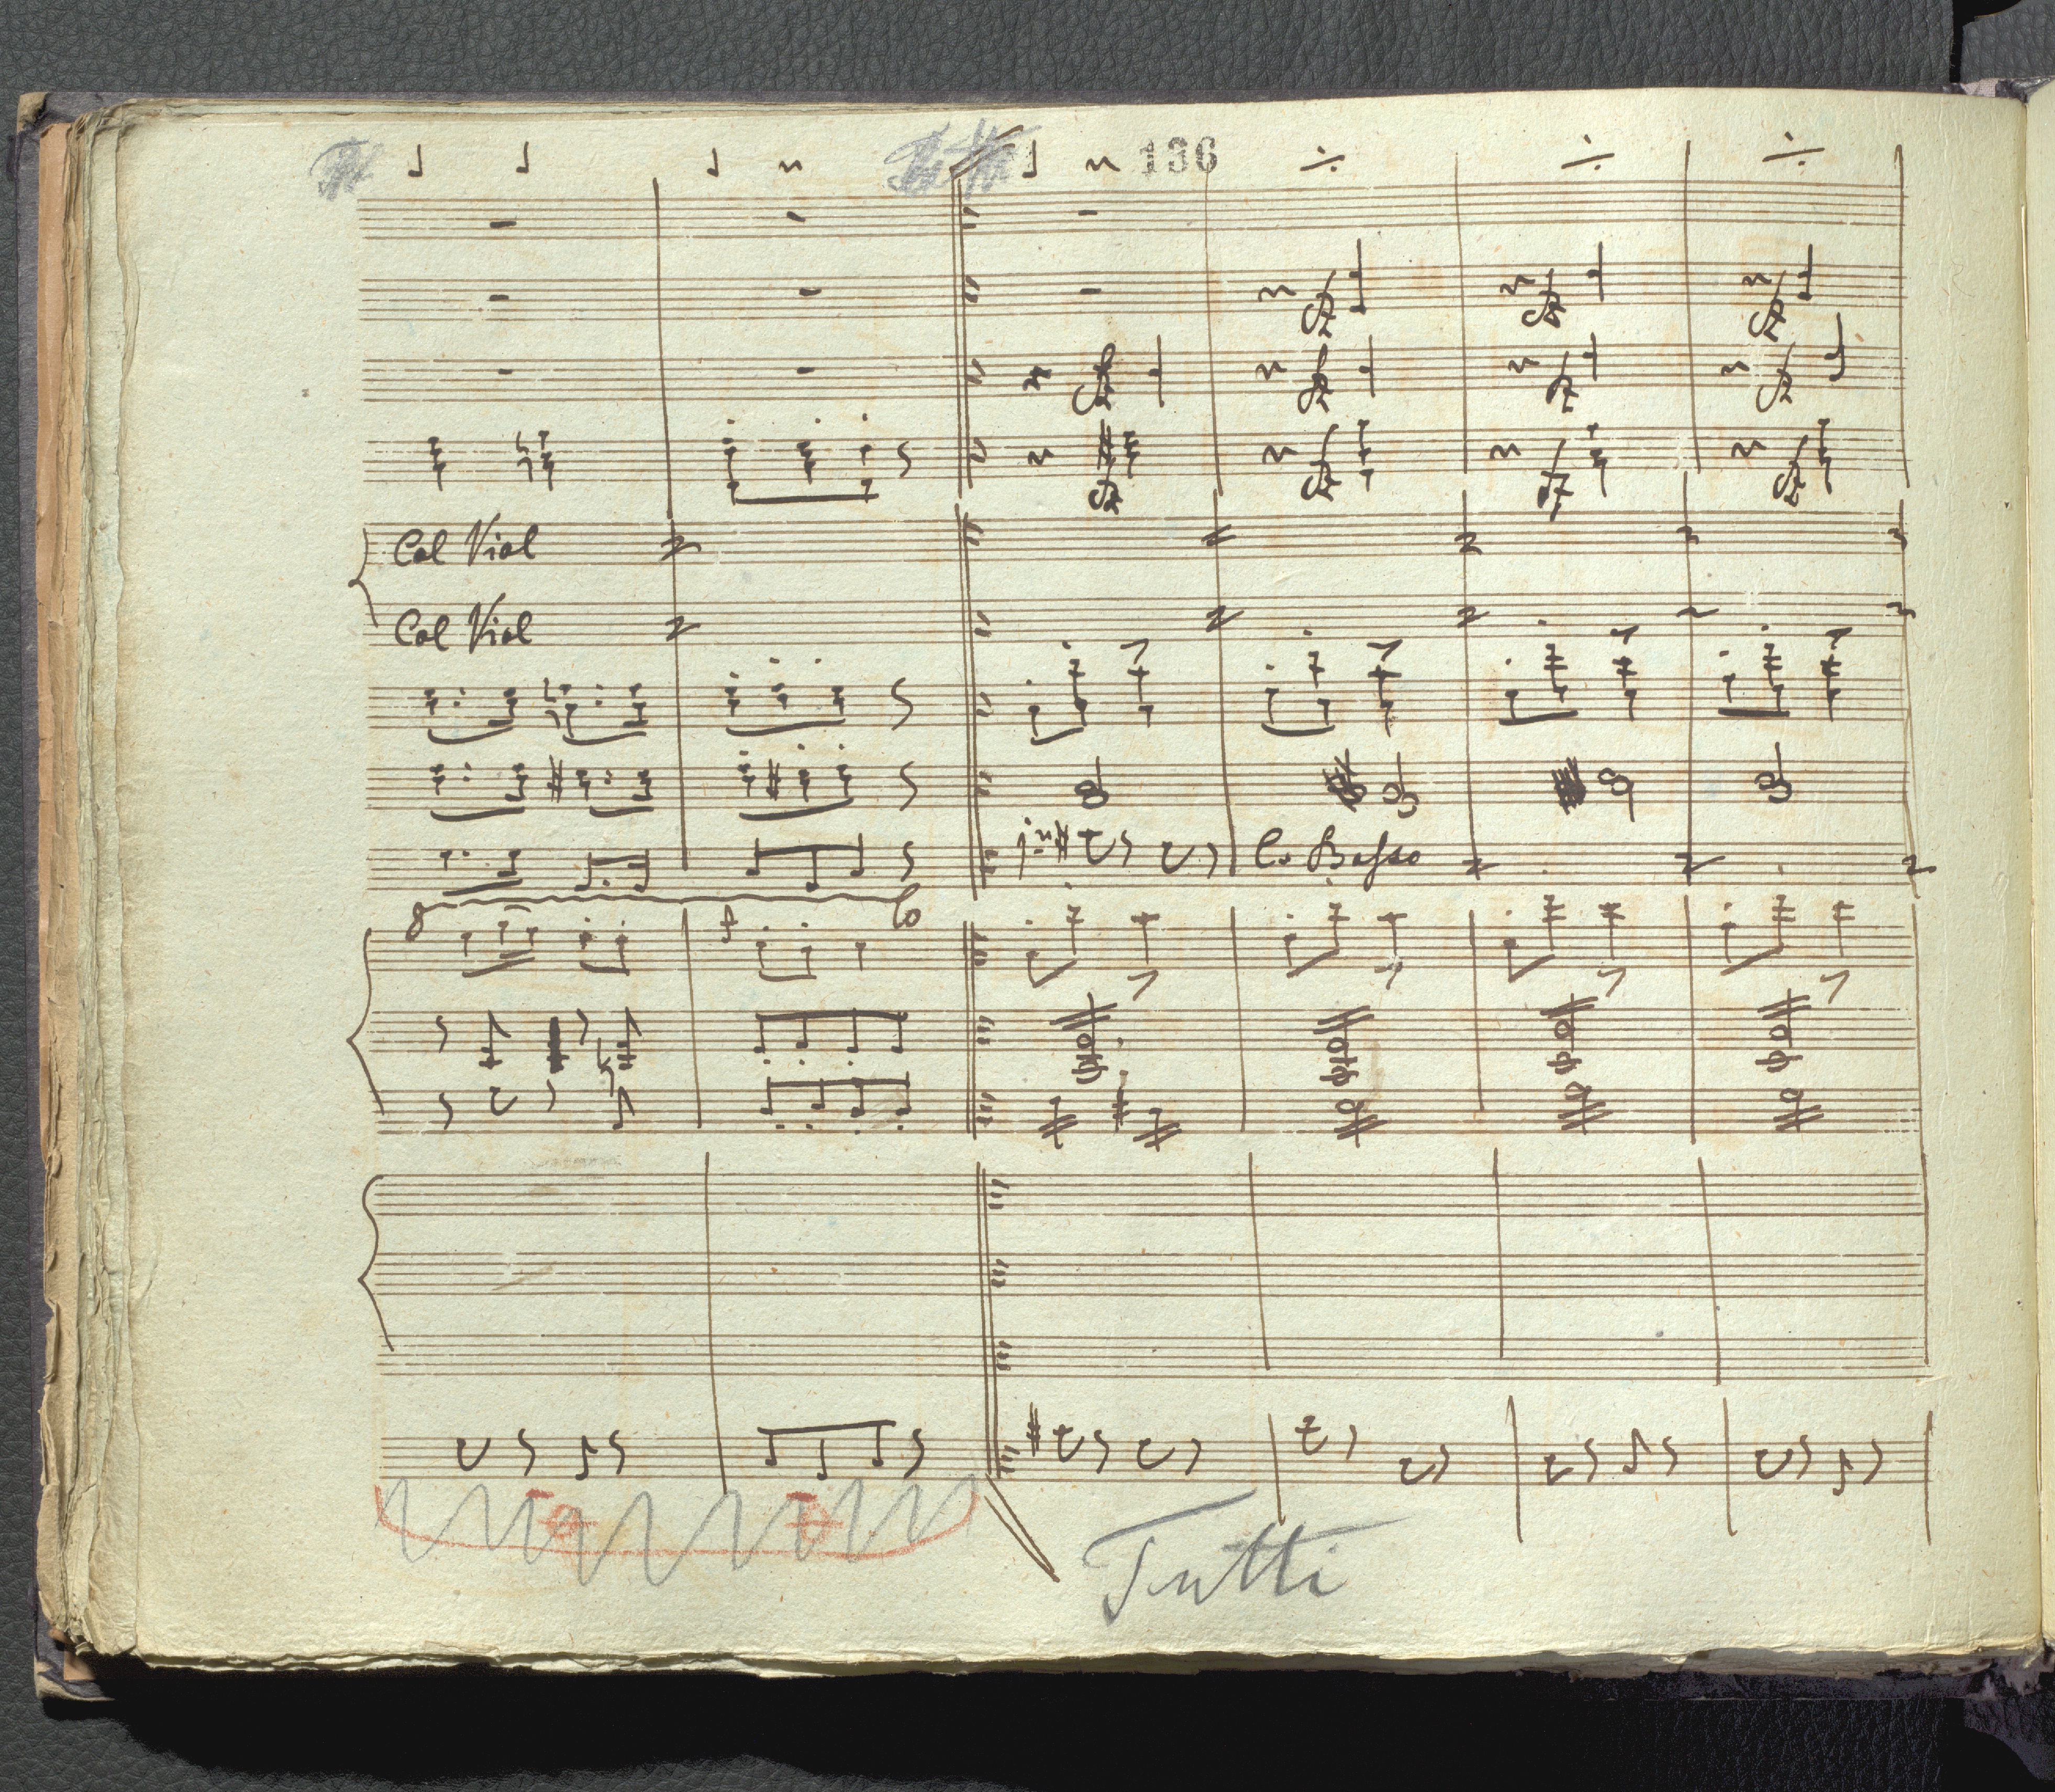 136
Col Viol
Col Viol
Co Basso
8 lo
f
Tutti